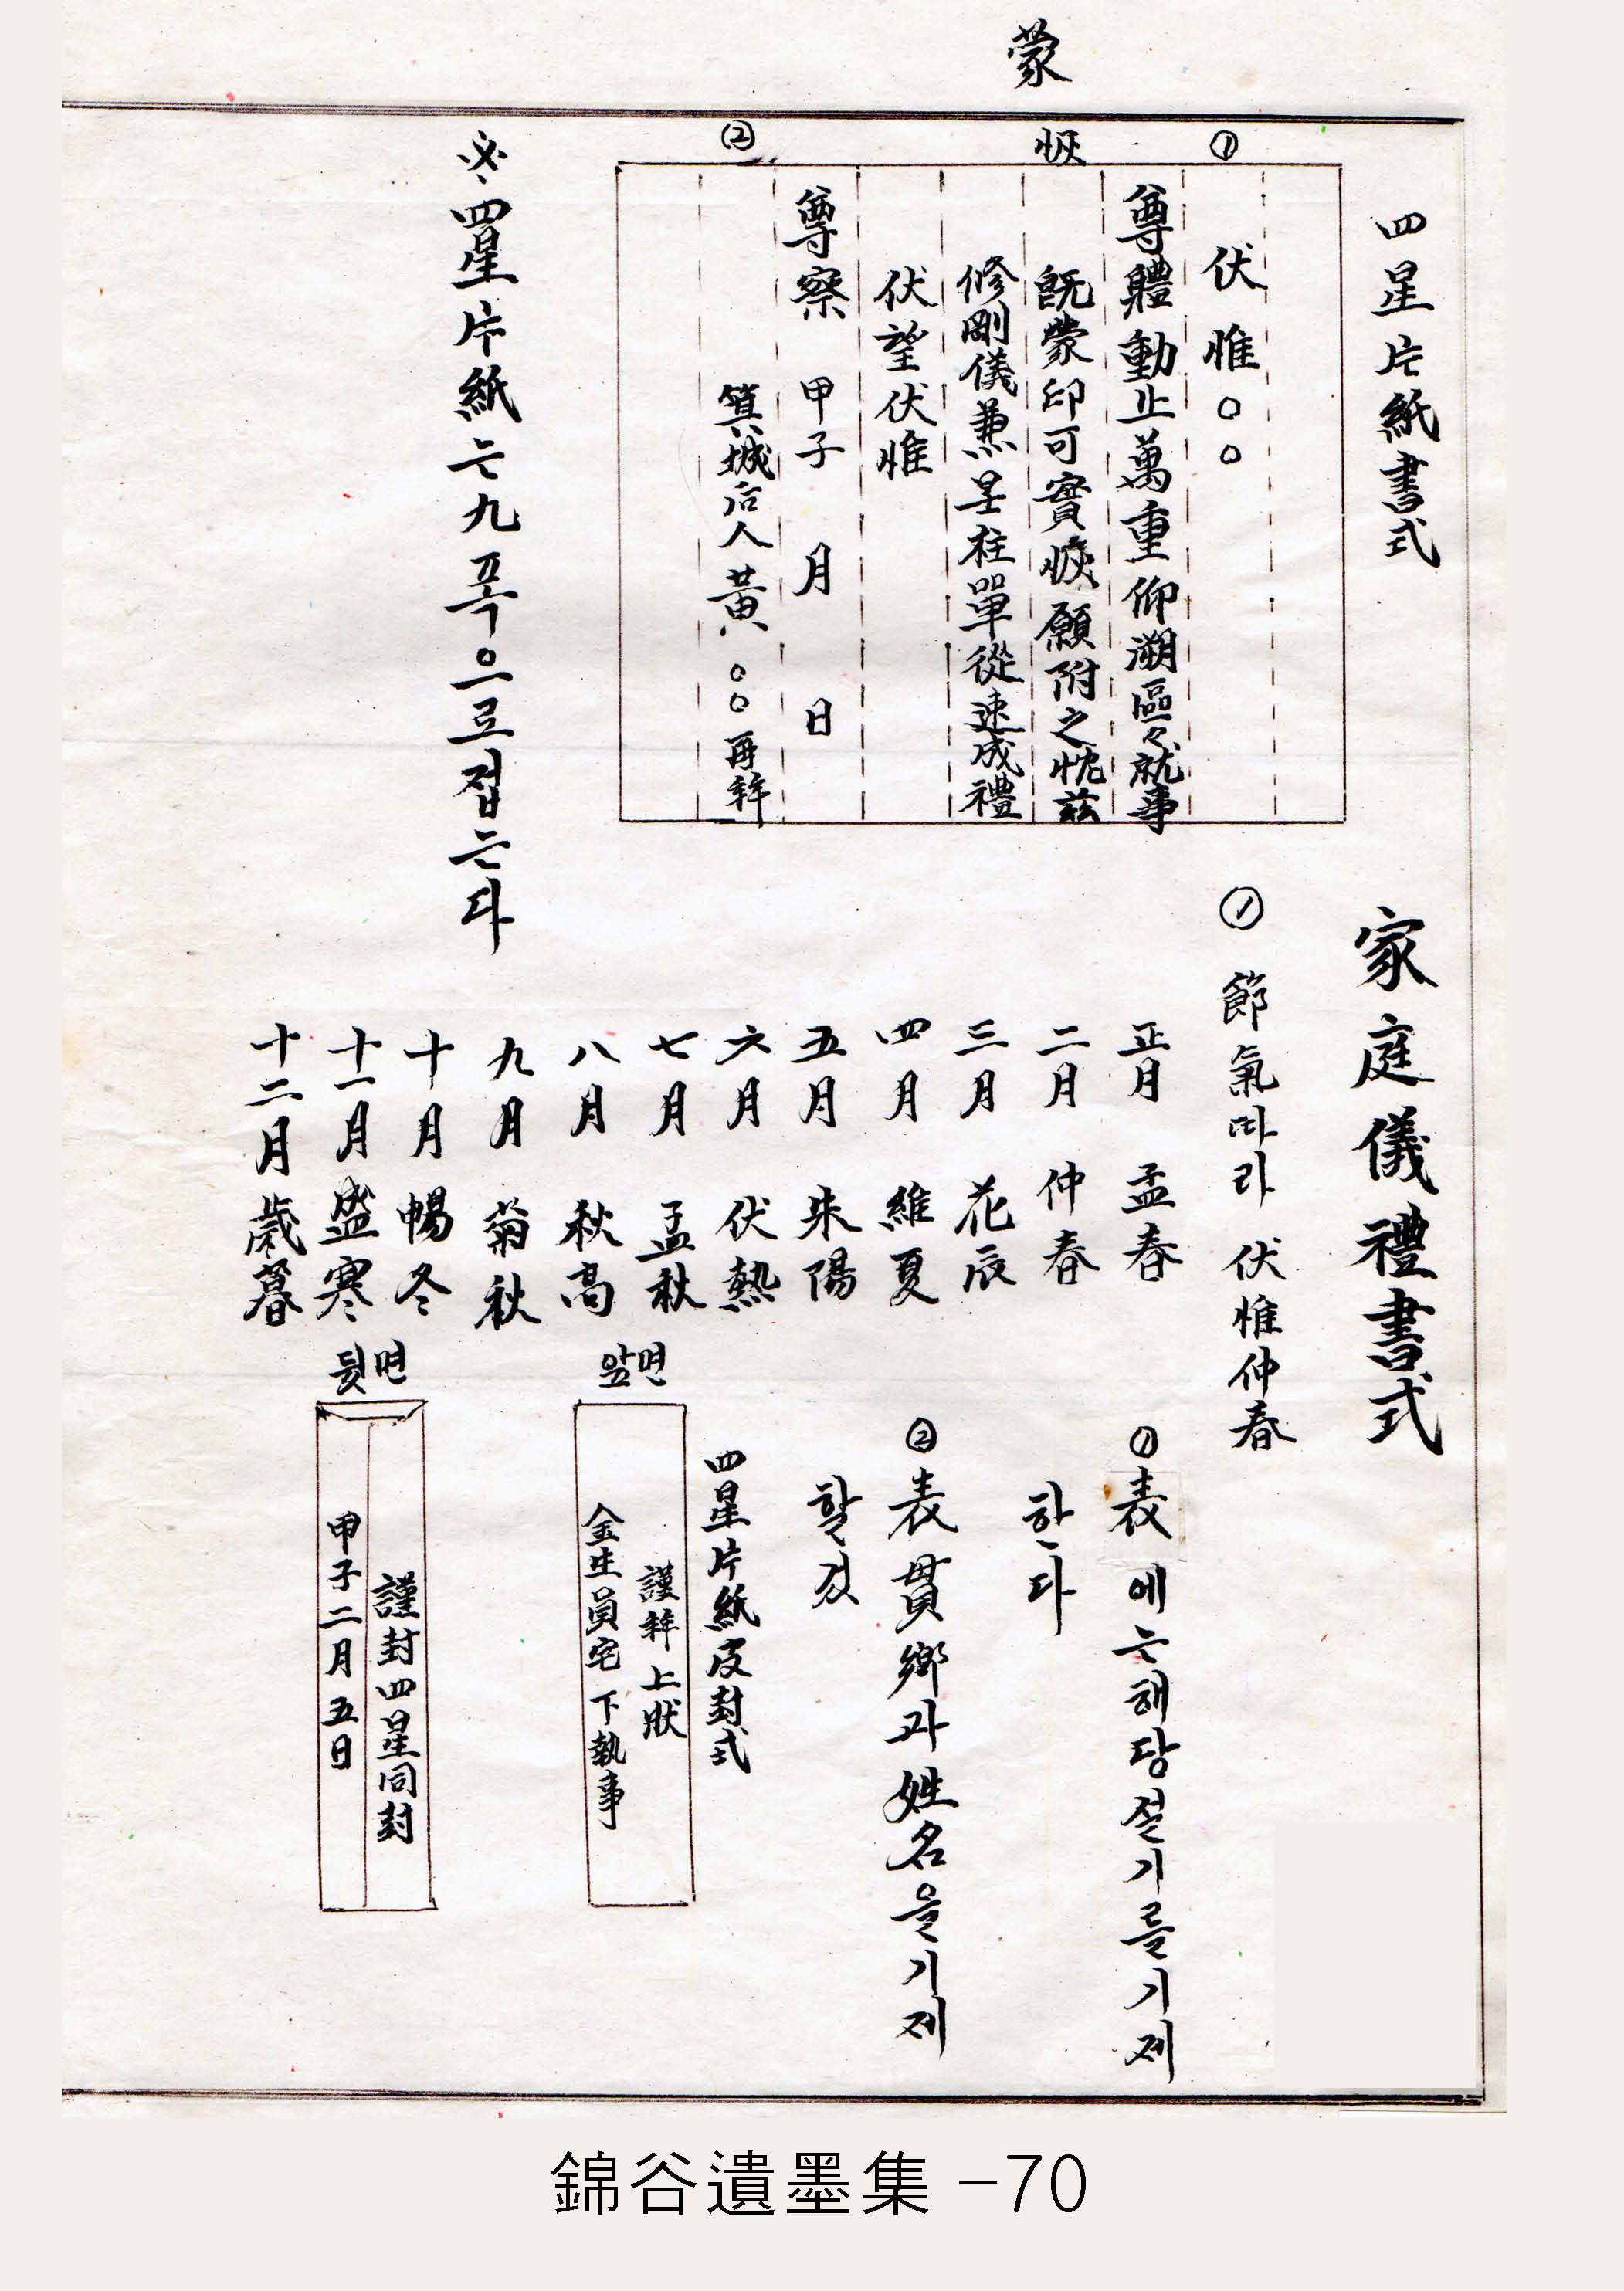 蒙
家庭儀禮書式
四星片紙書式
①
伏惟○○
尊體動止萬重仰溯區々就事
旣蒙印可實愜願附之忱玆
愜
修剛儀兼呈柱單從速成禮
伏望伏惟
②
尊察 甲子 月 日
箕城后人黃○○再拜
※四星片紙는九폭으로접는다
① 節氣따라 伏惟仲春
正月 孟春
二月 仲春
三月 花辰
四月 維夏
五月 朱陽
六月 伏熱
七月 孟秋
八月 秋高
九月 菊秋
十月 暢冬
十一月 盛寒
十二月 歲暮
①表에는해당절기를기제
한다
②表貫鄕과姓名을기제
할것
四星片紙皮封式
앞면
謹拜上狀
金生員宅 下執事
뒷면
謹封四星同封
甲子二月五日
錦谷遺墨集 -70